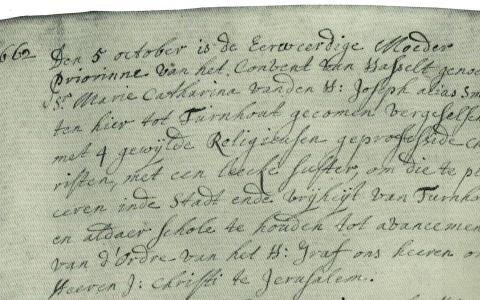 662 Den 5 october is de Eerweerdige Moeder
priorinne van het Convent van Hasselt genoe
Sr Marie Catharina vanden H: Joseph alias Sm
ten hier tot Turnhout gecomen vergeselsch
met 4 gewijlde Religieusen geprofesside cho
risten, met een leecke suster, om die te pl
ceren inde Stadt ende vrijheijt van Turnho
en aldaer schole te houden tot avancemen
van d'Ordre van het H: Graf ons heeren o
Heeren J: Christi te Jerusalem.